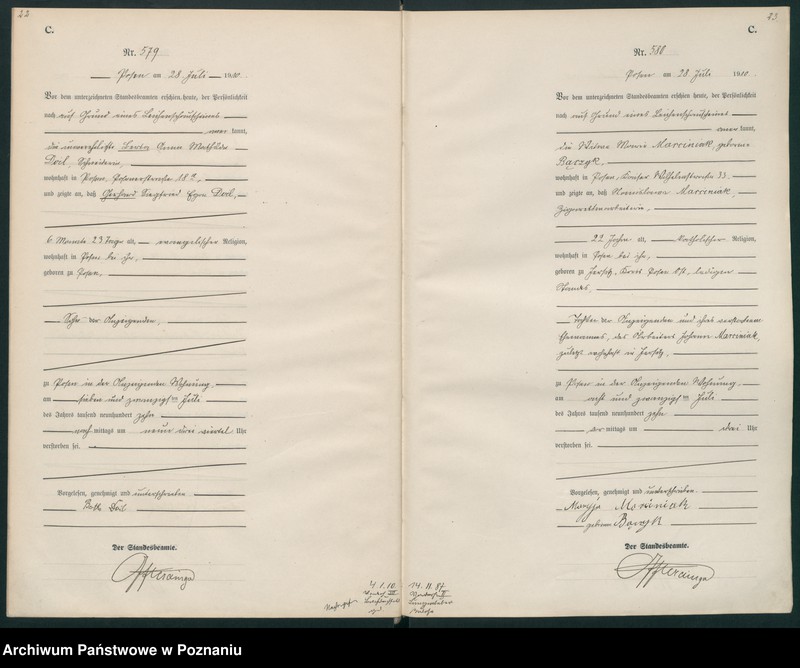 22
C.
Nr. 579
Posen am 28 Juli 1910.
Vor dem unterzeichneten Standesbeamten erschien heute, der Persönlichkeit
nach auf Grund eines Leichenschauscheines
aner kannt,
die unverehelichte Anna Mathilde
Dorl, Schneiderin,
wohnhaft in Posen,
und zeigte an, daß Gerhard Siegfried Egon Dorl,
6 Monate 23 Tage alt, evangelischer Religion,
wohnhaft in Posen bei ihr,
geboren zu Posen,
Sohn der Anzeigenden,
zu Posen in der Anzeigenden Wohnung,
am sieben und zwanzigsten Juli
des Jahres tausend neunhundert zehn
nach mittags um neun drei viertel Uhr
verstorben sei.
Vorgelesen, genehmigt und unterschrieben
Dorl
Der Standesbeamte.
4.1.10.
23
C.
Nr. 580
Posen am 28 Juli 1910.
Vor dem unterzeichneten Standesbeamten erschien heute, der Persönlichkeit
nach auf Grund eines Leichenschauscheines
aner kannt,
die Witwe Marie Marciniak, geborene
Bączyk,
wohnhaft in Posen, Kaiser Wilhelmstraße 33,
und zeigte an, daß Stanislawa Marciniak,
Zigarettenarbeiterin,
22 Jahre alt, katholischer Religion,
wohnhaft in Posen bei ihr,
geboren zu Jersitz, Kreis Posen Ost, ledigen
Standes,
Tochter der Anzeigenden und ihres verstorbenen
Ehemannes, des Arbeiters Johann Marciniak,
zuletzt wohnhaft in Jersitz,
zu Posen in der Anzeigenden Wohnung,
am acht und zwanzigsten Juli
des Jahres tausend neunhundert zehn
vor mittags um drei Uhr
verstorben sei.
Vorgelesen, genehmigt und unterschrieben
Maryja Marciniak
geborene Bączyk
Der Standesbeamte.
14.11.87
Archiwum Państwowe w Poznaniu